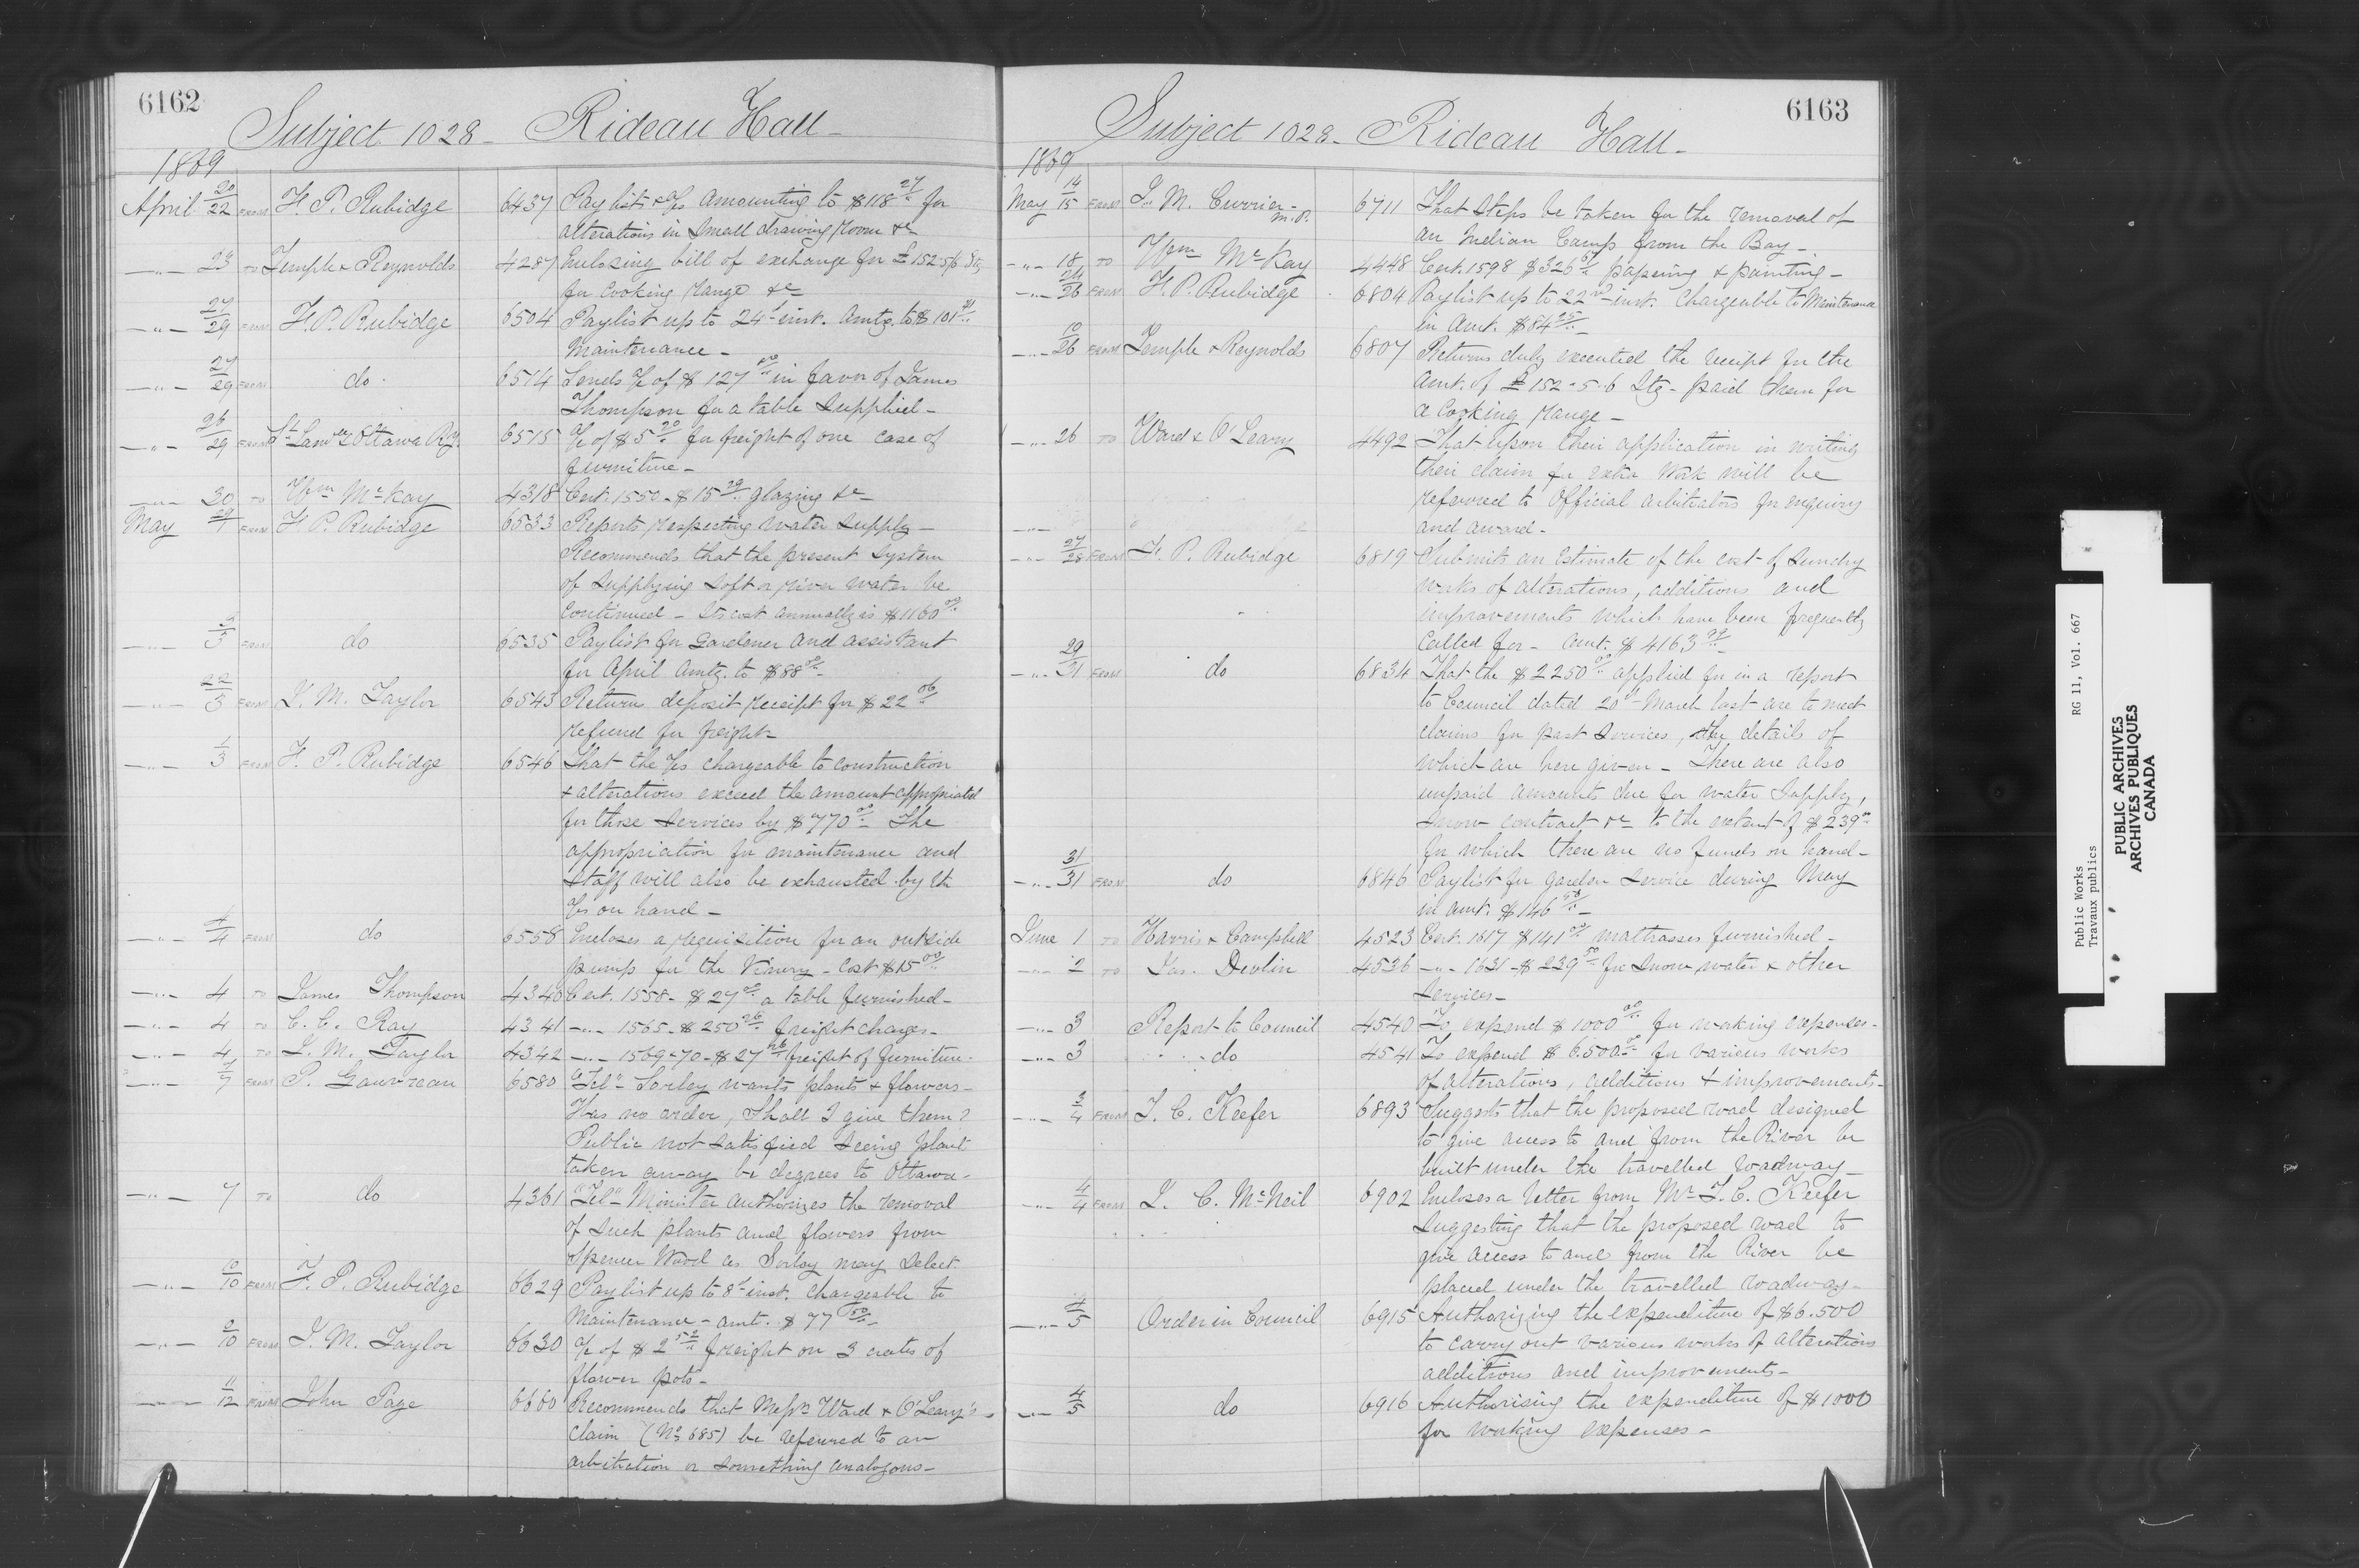 6162
Subject 1028 - Rideau Hall -
1869
April 20/22 FROM F. P. Rubidge 6437 Paylist & a/cs amounting to $118 27/.. for
alterations in small drawing room &c
-"- 23 TO Temple & Reynolds 4287 Enclosing bill of exchange for £152-5/6 Stg
for Cooking range &c
-"- 27/29 FROM F. P. Rubidge 6504 Paylist up to 24th inst. Amtg. to $101 31/..
Maintenance -
-"- 27/29 FROM do. 6514 Sends a/c of $127 00/.. in favor of James
Thompson for a table supplied -
-"- 26/29 FROM St Lawce & Ottawa Ry. 6515 a/c of $5 20/.. for freight of one case of
furniture -
-"- 30 TO Wm McKay 4318 Cert. 1550 - $15 29/.. glazing &c
May 29/1 FROM F. P. Rubidge 6533 Reports respecting water supply -
Recommends that the present system
of supplying soft or river water be
continued - Its cost annually is $1160 00/..
-"- 3/3 FROM do 6535 Paylist for Gardener and assistant
for April Amtg. to $88 00/..
-"- 22/3 FROM J. M. Taylor 6543 Return deposit receipt for $22 06/..
refund for freight
-"- 1/3 FROM F. P. Rubidge 6546 That the a/cs chargeable to construction
& alterations exceed the amount appropriated
for those services by $770 00/.. The
appropriation for maintenance and
staff will also be exhausted by the
a/cs on hand -
-"- 4/4 FROM do 6558 Encloses a requisition for an outside
pump for the Vinery - Cost $15 00/..
-"- 4 TO James Thompson 4340 Cert. 1558 - $27 00/.. a table furnished -
-"- 4 TO C. C. Ray 4341 -"- 1565 - $250 26/.. freight charges -
-"- 4 TO J. M. Taylor 4342 -"- 1569-70 - $27 26/.. freight of furniture -
-"- 7/7 FROM P. Gauvreau 6580 "Tel" Sorley wants plants & flowers -
Has no order, Shall I give them?
Public not satisfied seeing plant
taken away be degrees to Ottawa -
-"- 7 TO do 4361 "Tel" Minister authorizes the removal
of such plants and flowers from
Spencer Wood as Sorley may select
-"- 10/10 FROM F. P. Rubidge 6629 Paylist up to 8th inst. chargeable to
Maintenance - amt. $77 50/..
-"- 8/10 FROM J. M. Taylor 6630 a/c of $2 52/.. freight on 3 crates of
flower pots -
-"- 11/12 FROM John Page 6660 Recommends that Messrs Ward & O'Leary's
claim (No 685) be referred to an
arbitration or something analogous -
6163
Subject 1028 - Rideau Hall -
1869
May 14/15 FROM J. M. Currier - M.P. 6711 That steps be taken for the removal of
an Indian Camp from the Bay -
-"- 18 TO Wm McKay 4448 Cert. 1598 $326 67/.. papering & painting -
-"- 24/26 FROM F. P. Rubidge 6804 Paylist up to 22nd inst. chargeable to Maintenance
in Amt. $84 25/..
-"- 10/26 FROM Temple & Reynolds 6807 Returns duly executed the receipt for the
Amt. of £152-5-6 Stg - paid them for
a Cooking range -
-"- 26 TO Ward & O'Leary 4492 That upon their application in writing
their claim for extra Work will be
referred to Official Arbitrators for enquiry
and award -
-"- 27/28 FROM F. P. Rubidge 6819 Submits an estimate of the cost of sundry
works of alterations, additions and
improvements which have been frequently
called for - Amt. $4163 29/..
-"- 29/31 FROM do 6834 That the $2250 00/.. applied for in a report
to Council dated 20th March last are to meet
claims for past services, the details of
which are here given - There are also
unpaid amounts due for water supply,
snow contract &c to the extent of $239 00/..
for which there are no funds on hand -
-"- 31/31 FROM do 6846 Paylist for garden service during May
in amt. $146 50/..
June 1 TO Harris & Campbell 4523 Cert. 1617 $141 00/.. mattrasses furnished -
-"- 2 TO Jas. Devlin 4536 -"- 1631 - $239 50/.. for snow, water & other
services -
-"- 3 Report to Council 4540 To expend $1000 00/.. for working expenses -
-"- 3 do 4541 To expend $6.500 00/.. for various works
of alterations, additions & improvements -
-"- 3/4 FROM T. C. Keefer 6893 Suggests that the proposed road designed
to give access to and from the River be
built under the travelled roadway -
-"- 4/4 FROM J. C. McNeil 6902 Encloses a letter from Mr T. C. Keefer
suggesting that the proposed road to
give access to and from the River be
placed under the travelled roadway -
-"- 4/5 Order in Council 6915 Authorizing the expenditure of $6.500
to carry out various works of alterations
additions and improvements -
-"- 4/5 do 6916 Authorising the expenditure of $1000
for working expenses -
Public Works RG 11, Vol. 667
Travaux publics
PUBLIC ARCHIVES
ARCHIVES PUBLIQUES
CANADA